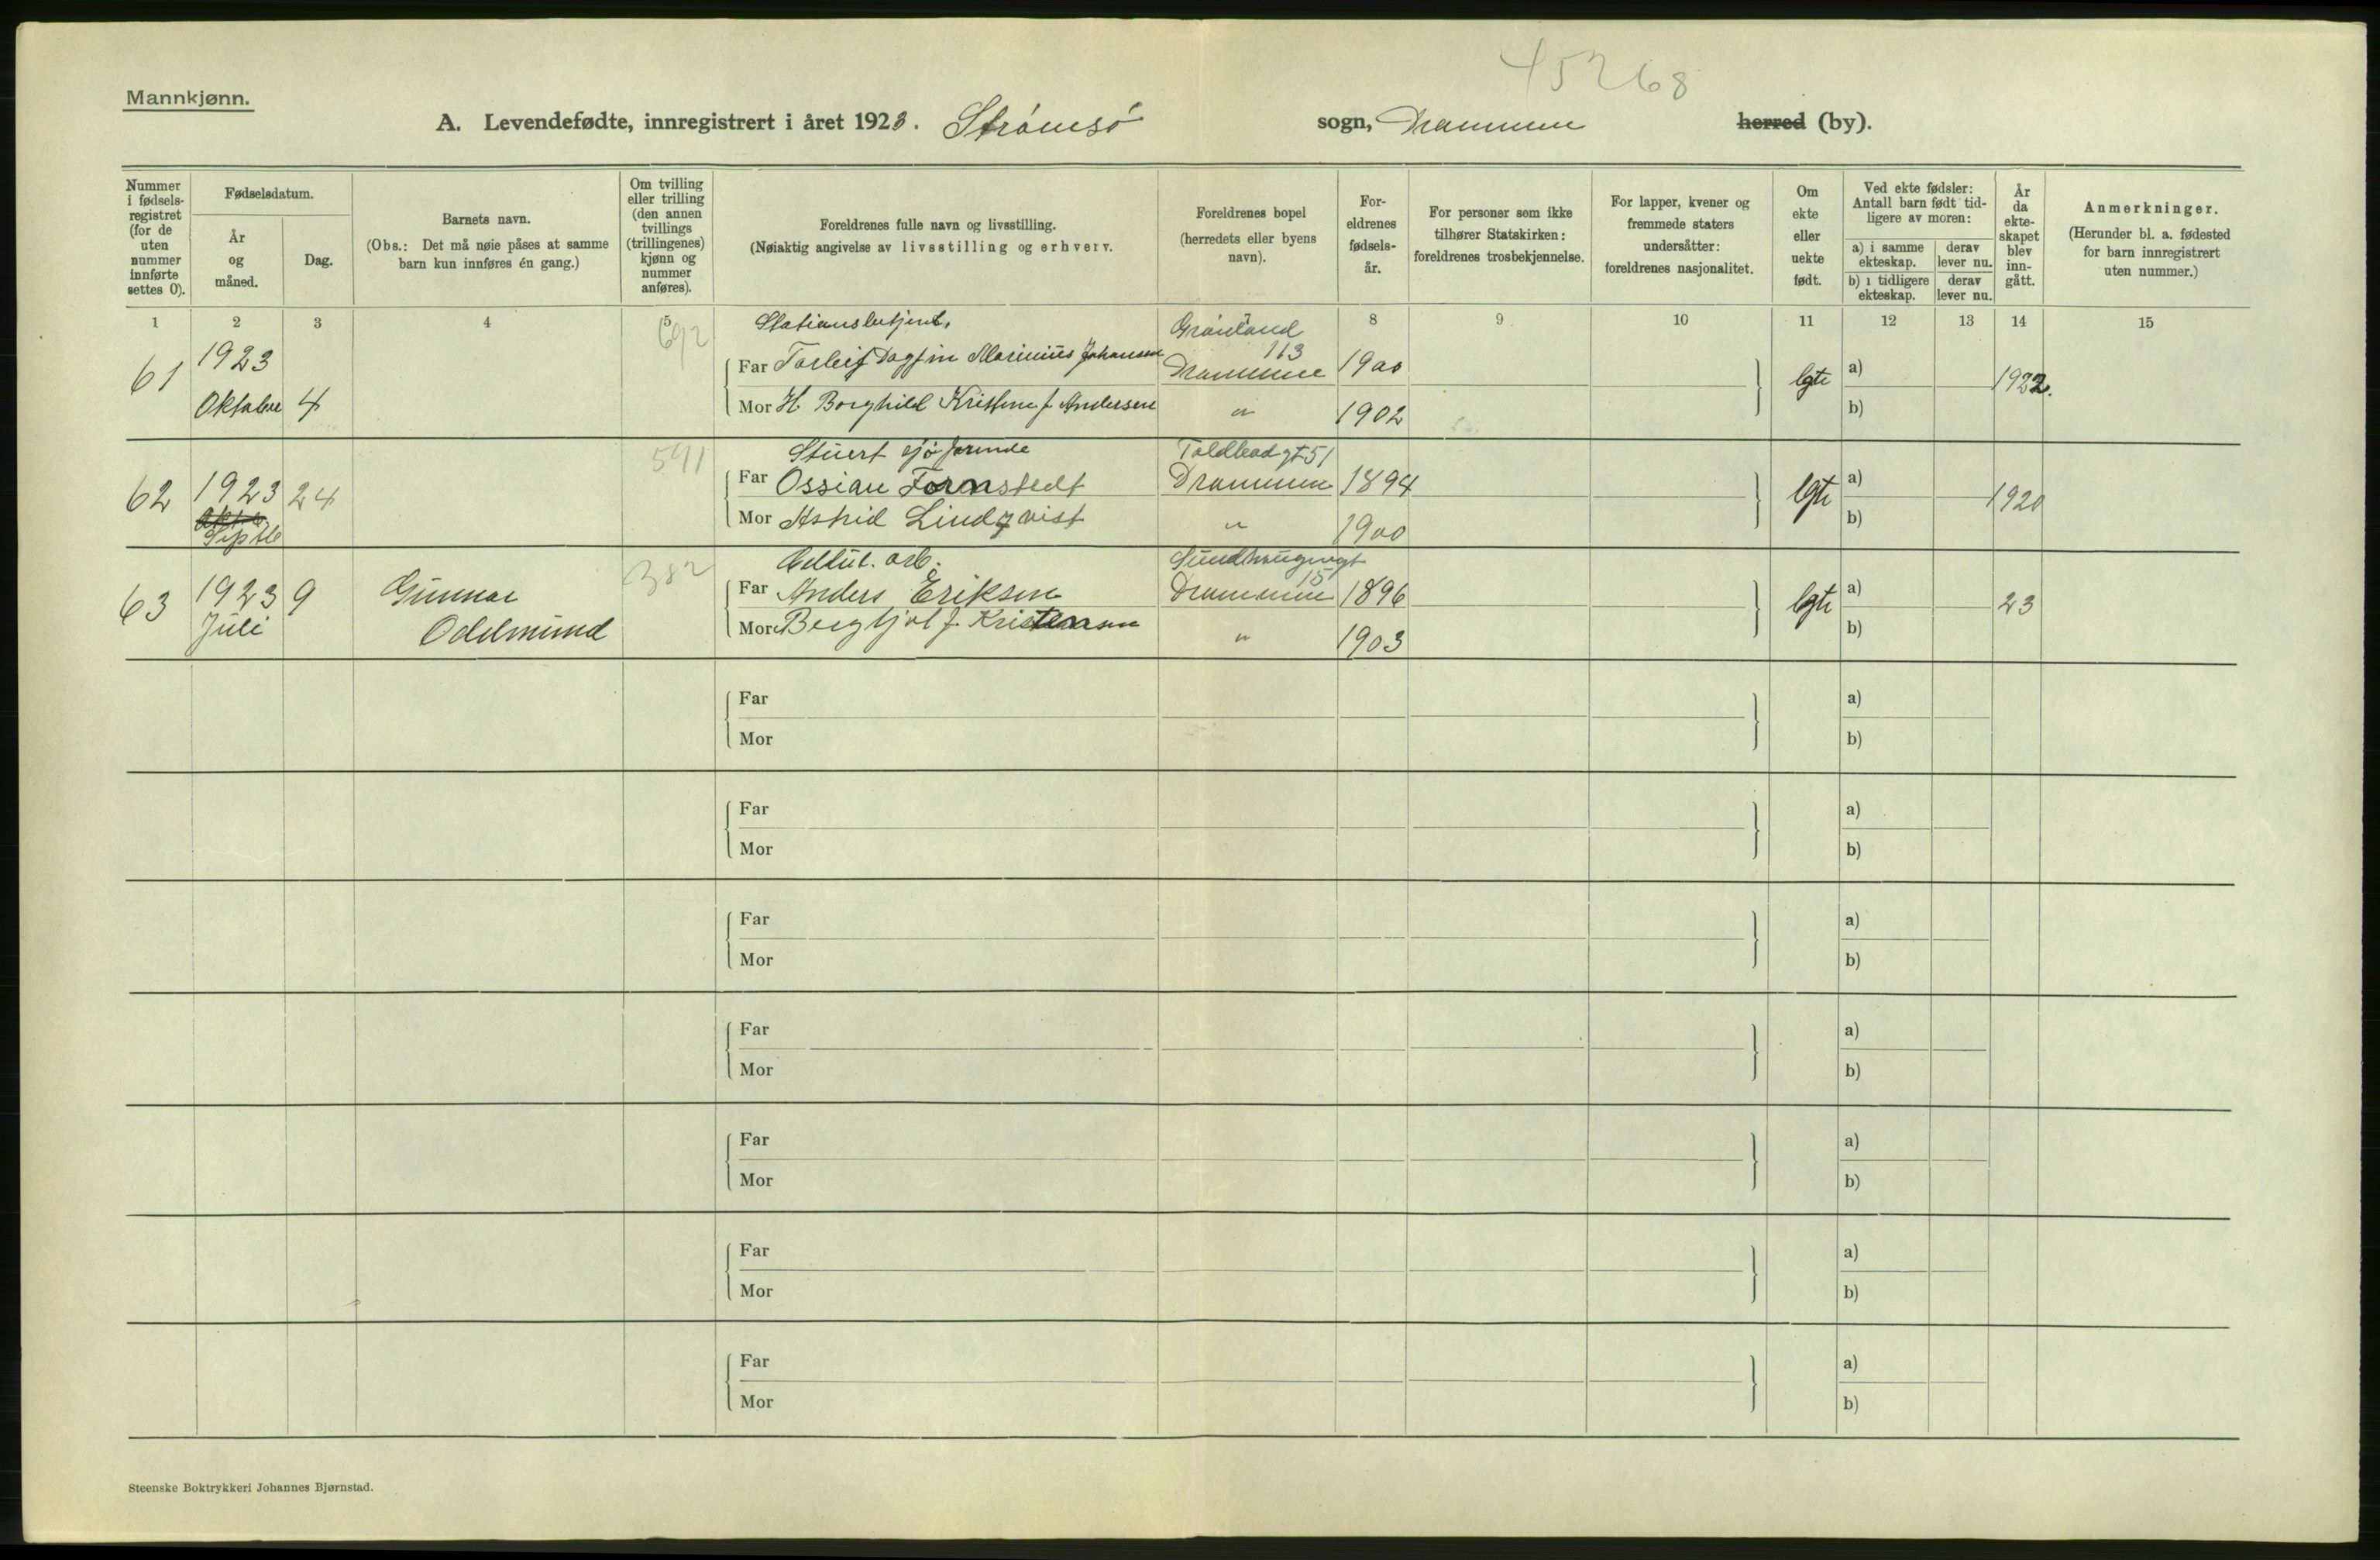 45268
Mannkjønn.
A. Levendefødte, innregistrert i året 1923. Strømsø sogn, Drammen herred (by).
Nummer i fødsels-registret (for de uten nummer innførte settes 0).
Fødselsdatum.
År og måned.
Dag.
Barnets navn.
(Obs.: Det må nøie påses at samme barn kun innføres én gang.)
Om tvilling eller trilling (den annen tvillings (trillingenes) kjønn og nummer anføres).
Foreldrenes fulle navn og livsstilling.
(Nøiaktig angivelse av livsstilling og erhverv.
Foreldrenes bopel (herredets eller byens navn).
For-eldrenes fødsels-år.
For personer som ikke tilhører Statskirken: foreldrenes trosbekjennelse.
For lapper, kvener og fremmede staters undersåtter: foreldrenes nasjonalitet.
Om ekte eller uekte født.
Ved ekte fødsler: Antall barn født tid-ligere av moren:
a) i samme ekteskap.
derav lever nu.
b) i tidligere ekteskap.
derav lever nu.
År da ekte-skapet blev inn-gått.
Anmerkninger.
(Herunder bl. a. fødested for barn innregistrert uten nummer.)
1 2 3 4 5 8 9 10 11 12 13 14 15
692 Stationsbetjent. Grønland 113
61 1923 Far Torleif Dagfin Marinius Johansen Drammen 1900 a)
Oktober 4 Mor H Borghild Kristine f Andersen " 1902 egte b) 1922.
591 Stuert sjøfarende Toldbodgt 51
62 1923 24 Far Ossian Fornstedt Drammen 1894 egte a) 1920
Septbr Mor Astrid Lindqvist " 1900 b)
382 Cellul. arb. Sundhauggt 15
63 1923 9 Gunnar Far Anders Eriksen Drammen 1896 egte a) 23
Juli Oddmund Mor Bergljot f. Kristensen " 1903 b)
Far a)
Mor b)
Far a)
Mor b)
Far a)
Mor b)
Far a)
Mor b)
Far a)
Mor b)
Far a)
Mor b)
Far a)
Mor b)
Steenske Boktrykkeri Johannes Bjørnstad.